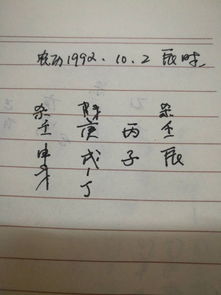 农历1992.10.2 辰时
杀 杀
壬 庚 丙 壬
申 戌 子 辰
才 丁